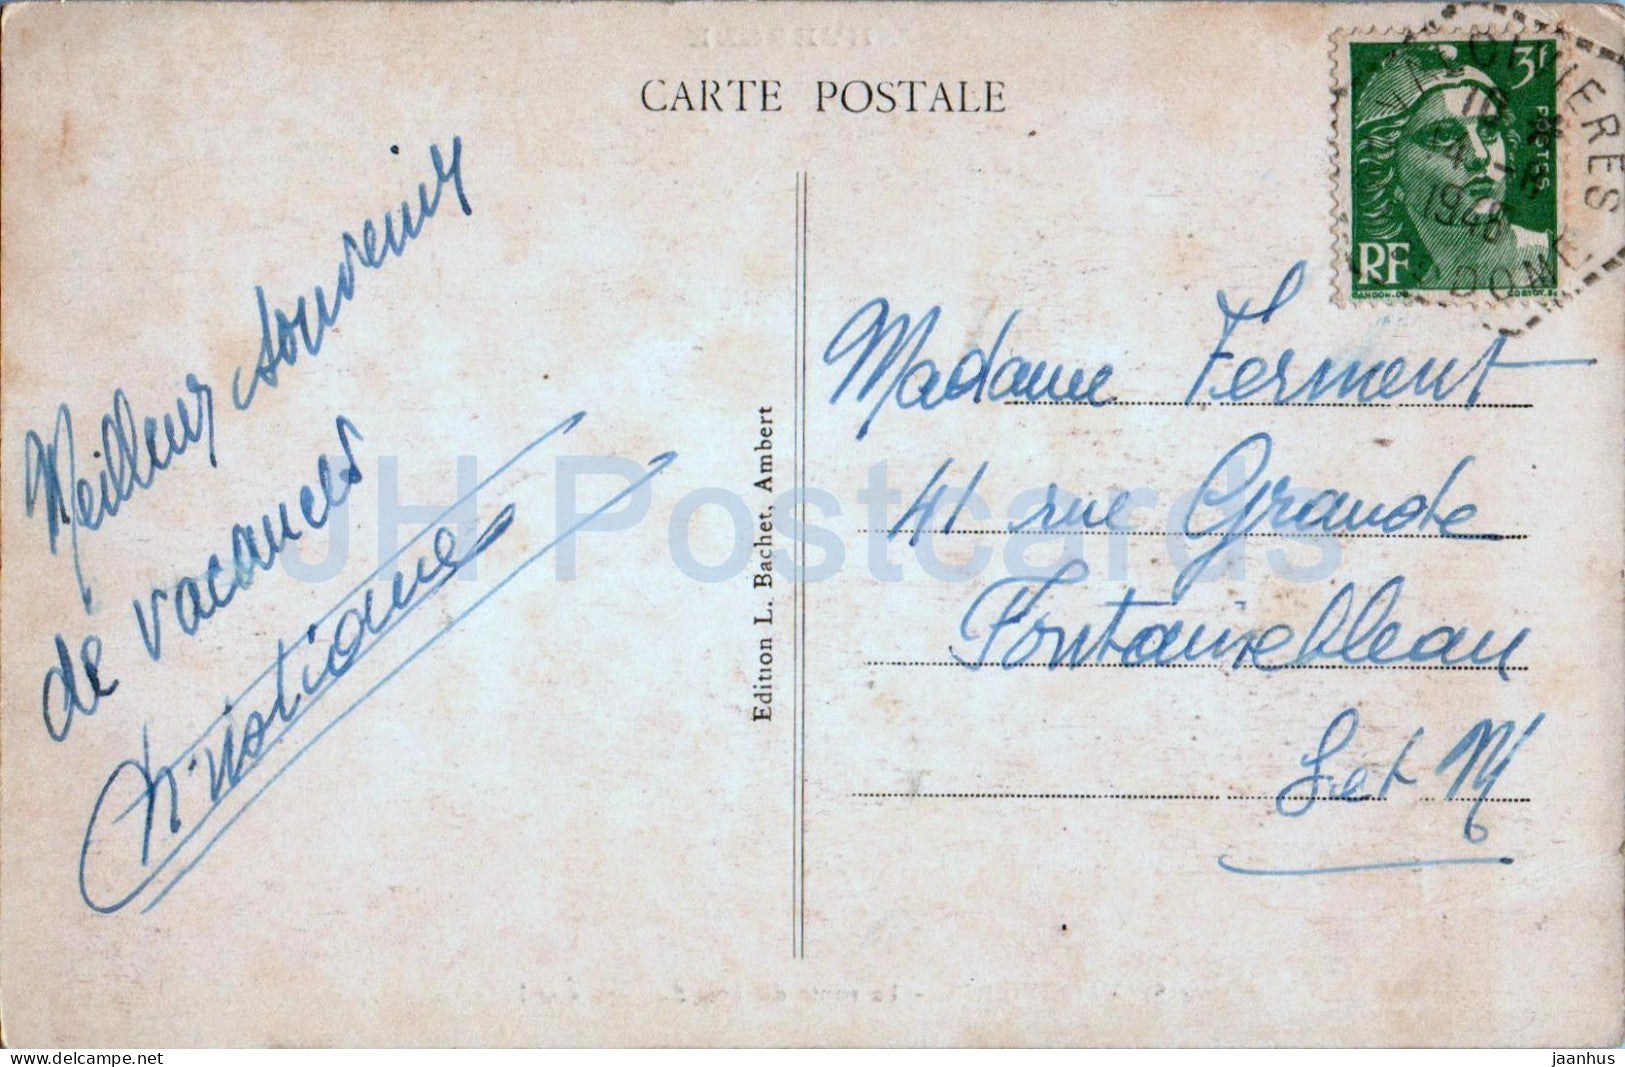 CARTE POSTALE
Meilleurs souvenirs
de vacances
Christiane
Edition L. Bachet, Ambert
3f
POSTES
RF
1946
DOME
Madame Ferment
41 rue Grande
Fontainebleau
S et M
JH Postcards
delcampe.net
jaanhus